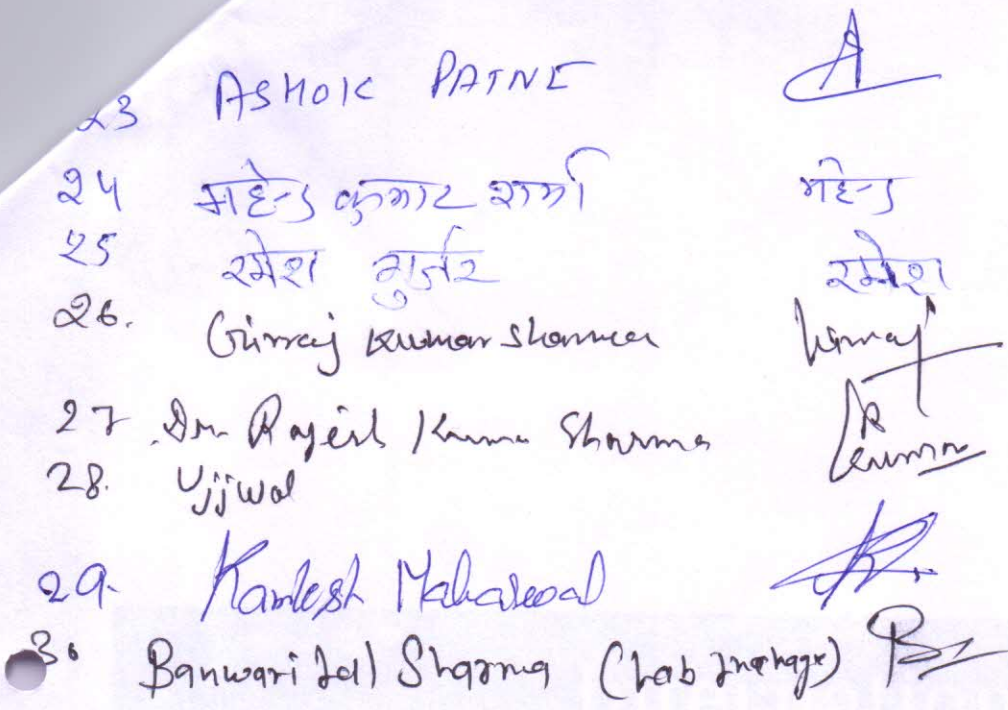 23 ASHOK PATNE
24 महेन्द्र कुमार शर्मा महेन्द्र
25 रमेश गुर्जर रमेश
26. Girraj Kumar Sharma Girraj
27 Dr. Rajesh Kumar Sharma R Kumar
28. Ujjwal
29. Kamlesh
30 Banwari Lal Sharma (Lab Incharge)